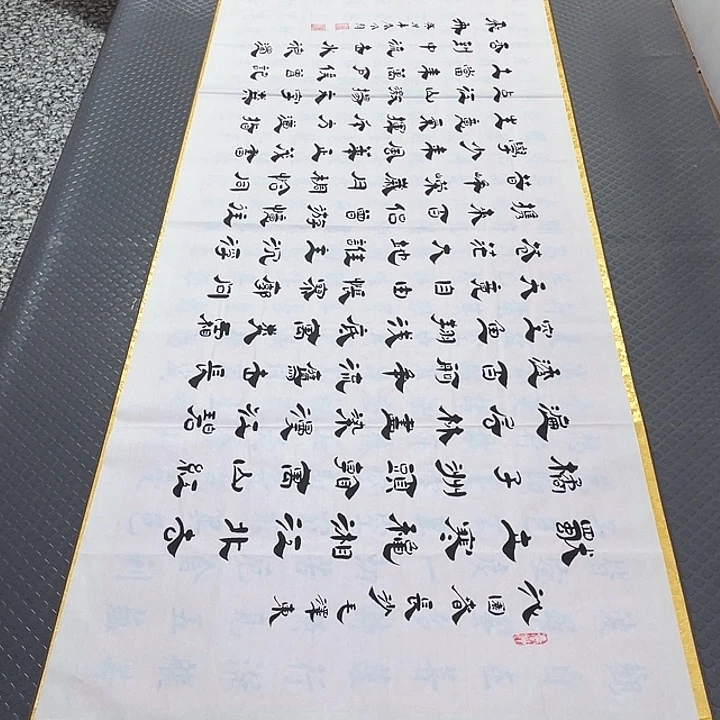 沁園春長沙毛澤東
獨立寒秋湘江北去
橘子洲頭看萬山紅
遍層林盡染漫江碧
透百舸爭流鷹击長
空魚翔淺底萬類霜
天競自由悵寥廓問
蒼茫大地誰主沉浮
攜來百侶曾游憶往
昔崢嶸歲月稠恰同
學少年風華正茂書
生意氣揮斥方遒指
点江山激揚文字糞
土當年萬户侯曾記
否到中流击水浪遏
飛舟